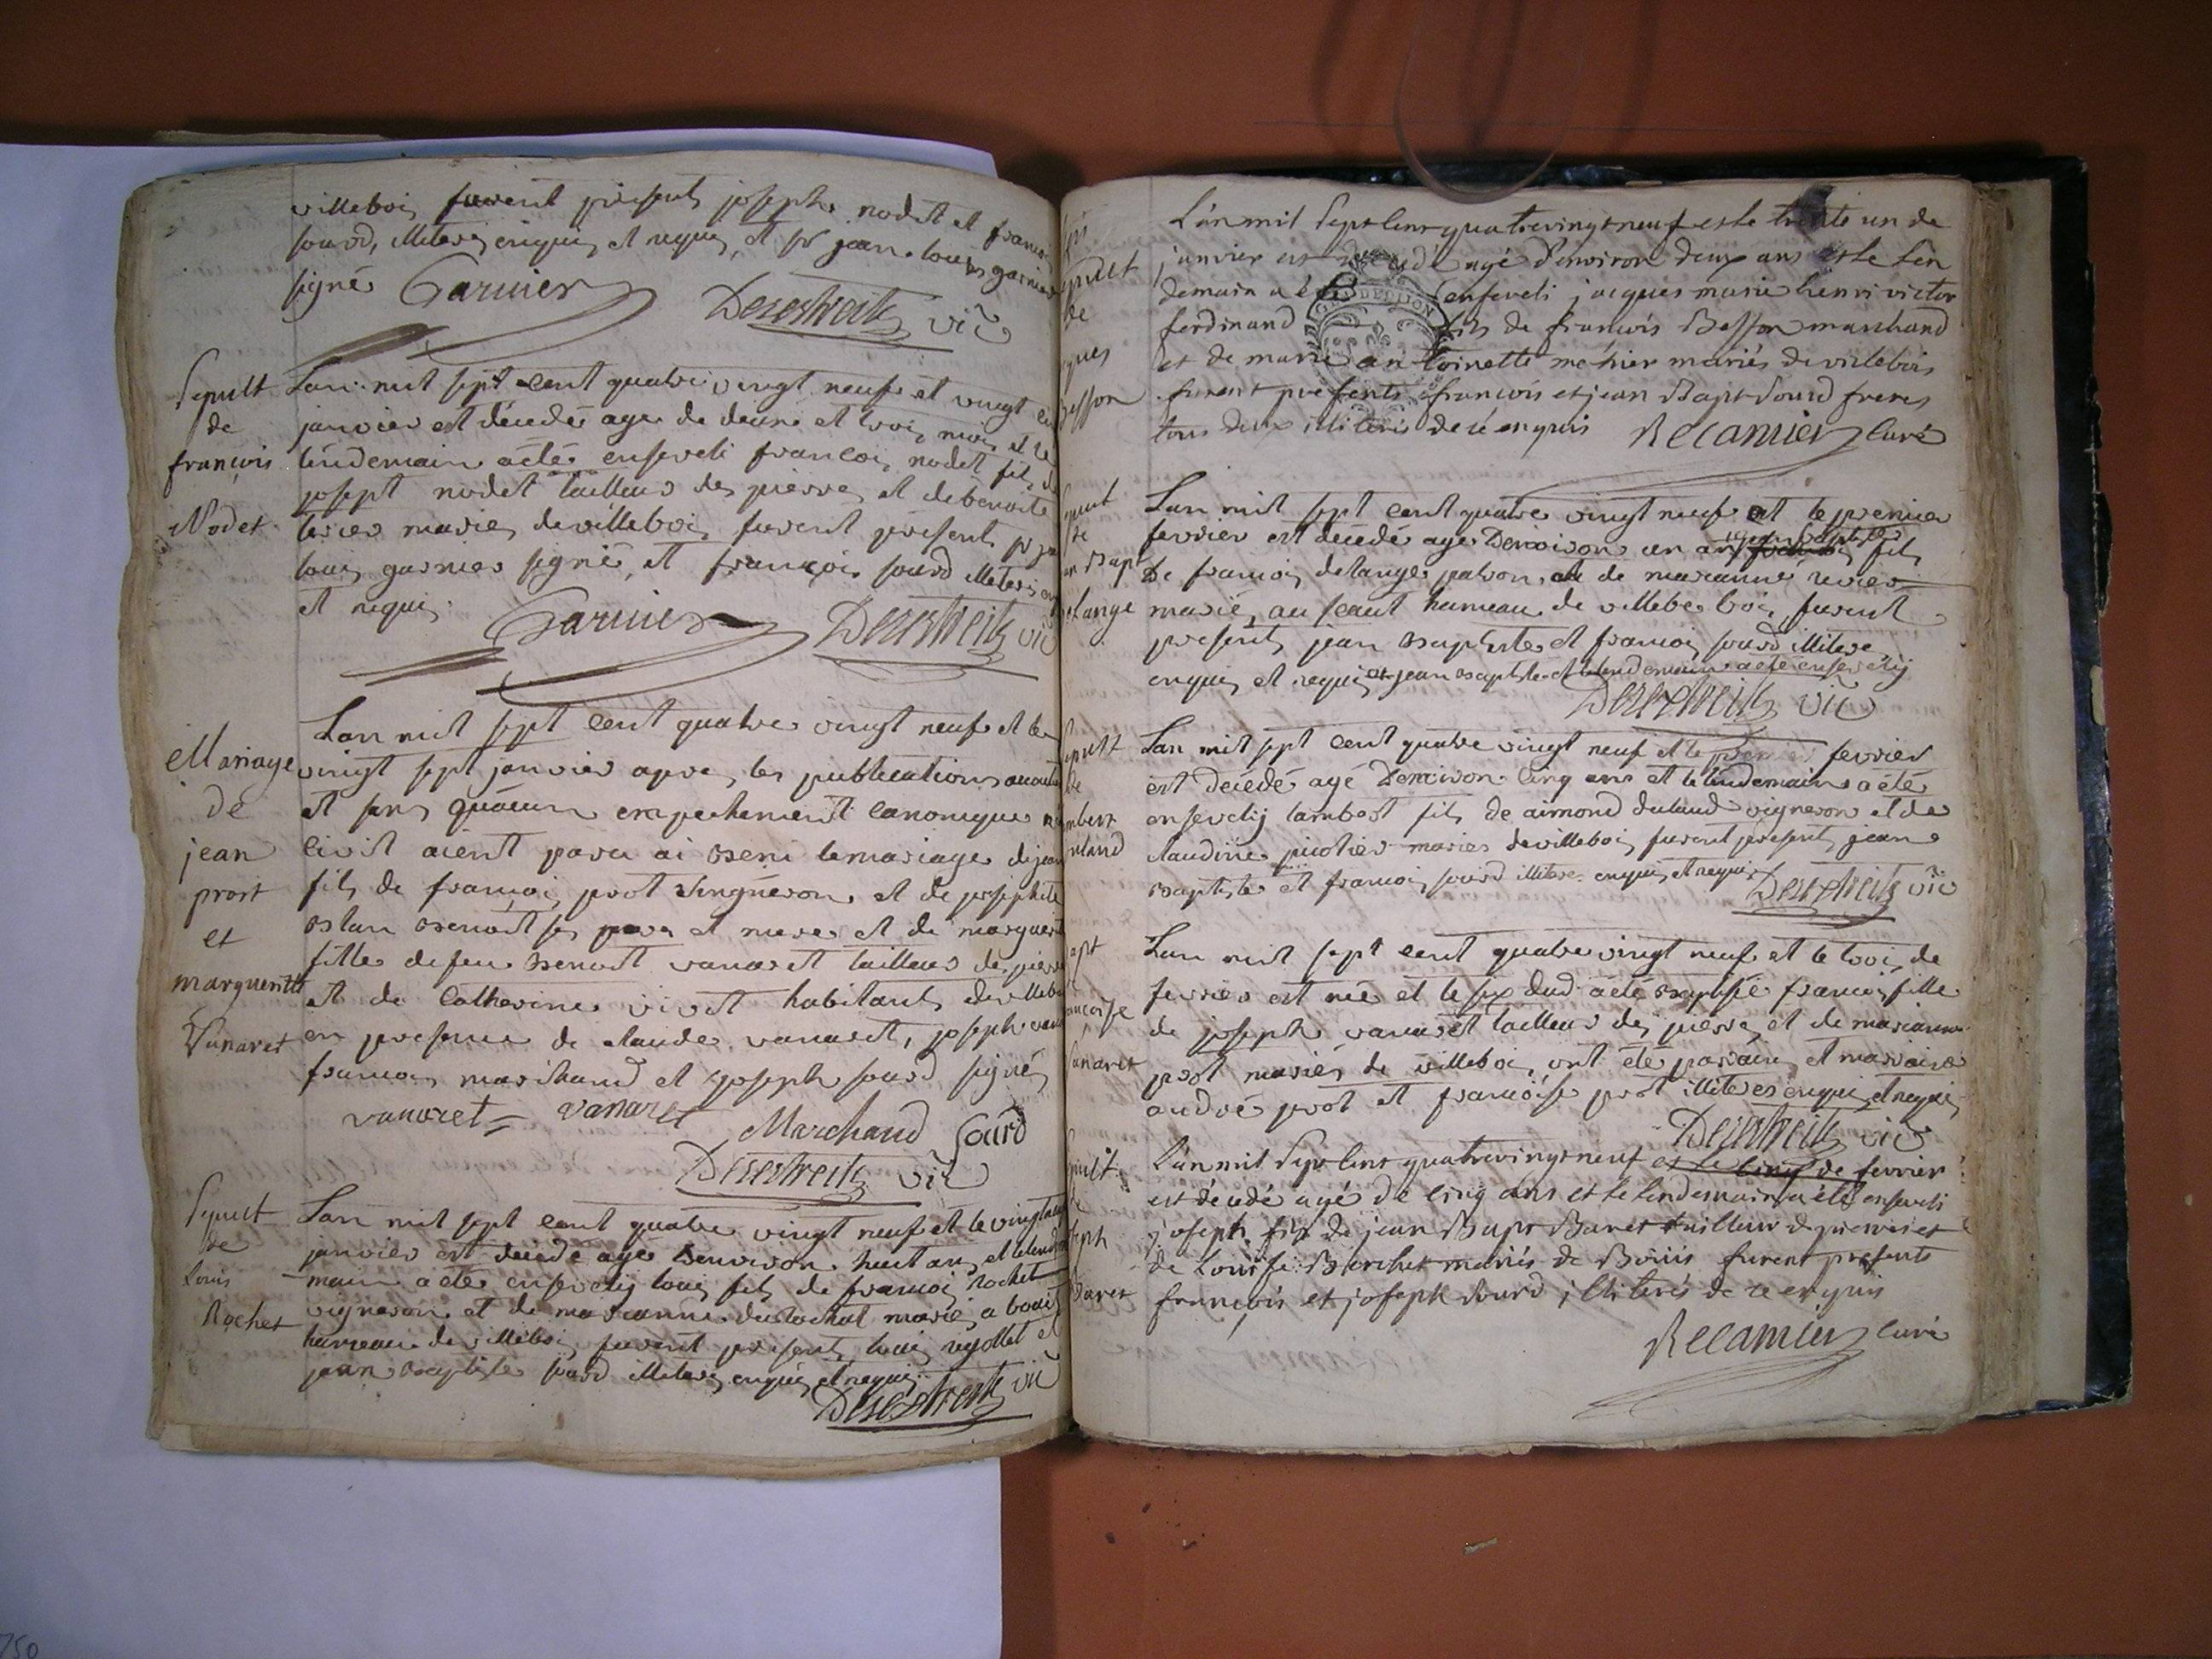 villeboi furent présent joseph nodet et francoi
sourd, illiteré enquis et requis, et sr jean louis garnier
signé Garnier Desestreits vic
Sepult de françois Nodet
Lan mil sept cent quatre vingt neuf et vingt
janvier est décédé age de deux et trois mois et le
lendemain a été enseveli francoi nodet fils de
josept nodet tailleur de pierre et de benoite
terier mariés de villeboi furent présent sr jean
louis garnier signé, et françois sourd illiteré en
et requis Garnier Desestreits vic
Mariage de jean prost et marguerite Vanaret
Lan mil sept cent quatre vingt neuf et le
vingt sept janvier apres les publications
et sans quaucun empechement canonique ni
civil aient paru ai beni le mariage de jean
fils de francoi prot vingneron et de josephte
benoit ses pere et mere et de marguerite
fille de feu Benoit vanaret tailleur de pierre
et de Catherine vivet habitants de villeboi
en presence de claude vanaret, joseph vanaret
francoi marchand et joseph sourd signés
vanaret vanaret Marchand Sourd
Desestreits vic
Sepult de Louis Rochet
Lan mil sept cent quatre vingt neuf et le vingt
janvier est décédé age denviron huit ans et lende
main a été ensevelij loui fils de francoi rochet
vigneron et de marianne duclochat mariés a bouis
hameau de villeboi furent présent loui rejollet et
jean baptiste sourd illiteré enquis et requis
Desestreits vic
Lan mil sept cent quatre vingt neuf et le trente un de
janvier est décédé agé d'environ deux ans et le len
demain a été enseveli jacques marie henri victor
ferdinand fils de françois Besson marchand
et de marie antoinette méhier mariés de villebois
furent presents françois et jean Bapt Sourd freres
tous deux illiterés de ce enquis Récamier Curé
sepult de jean Bapt delange
Lan mil sept cent quatre vingt neuf et le premier
fevrier est décédé age Denvison un an jean baptiste fils
De francoi delange patron et de marianne revier
marié au sault hameau de villebe boi furent
present jean baptiste et francoi sourd illiteré
enquis et requis et jean baptiste et lendemain a été ensevelij
Desestreits vic
sepult de lambert duland
Lan mil sept cent quatre vingt neuf et le premier fevrier
est décédé agé Denvison cinq ans et le lendemain a été
ensevelij lambert fils de aimond duland vigneron et de
claudine picotier mariés de villeboi furent présent jean
baptiste et francoi sourd illiteré enquis et requis Desestreits vic
bapt de françoise Vanaret
Lan mil sept cent quatre vingt neuf et le troi de
fevrier est née et le six dud a été baptisée francoise fille
de joseph vanaret tailleur de pierre et de marianne
prot mariés de villeboi, ont été parrain et marraine
andré prot et françoise prot illiteres enquis et requis
Desestreits vic
sepult de joseph Baret
L'an mil Sept Cent quatre vingt neuf et le cinq de fevrier
est décédé agé de cinq ans et le lendemain a été enseveli
joseph fils de jean Bapt Baret tailleur de pierre et
de Louise Berchet mariés de Bouis furent presents
françois et joseph Sourd illiterés de ce enquis
Récamier Curé
750